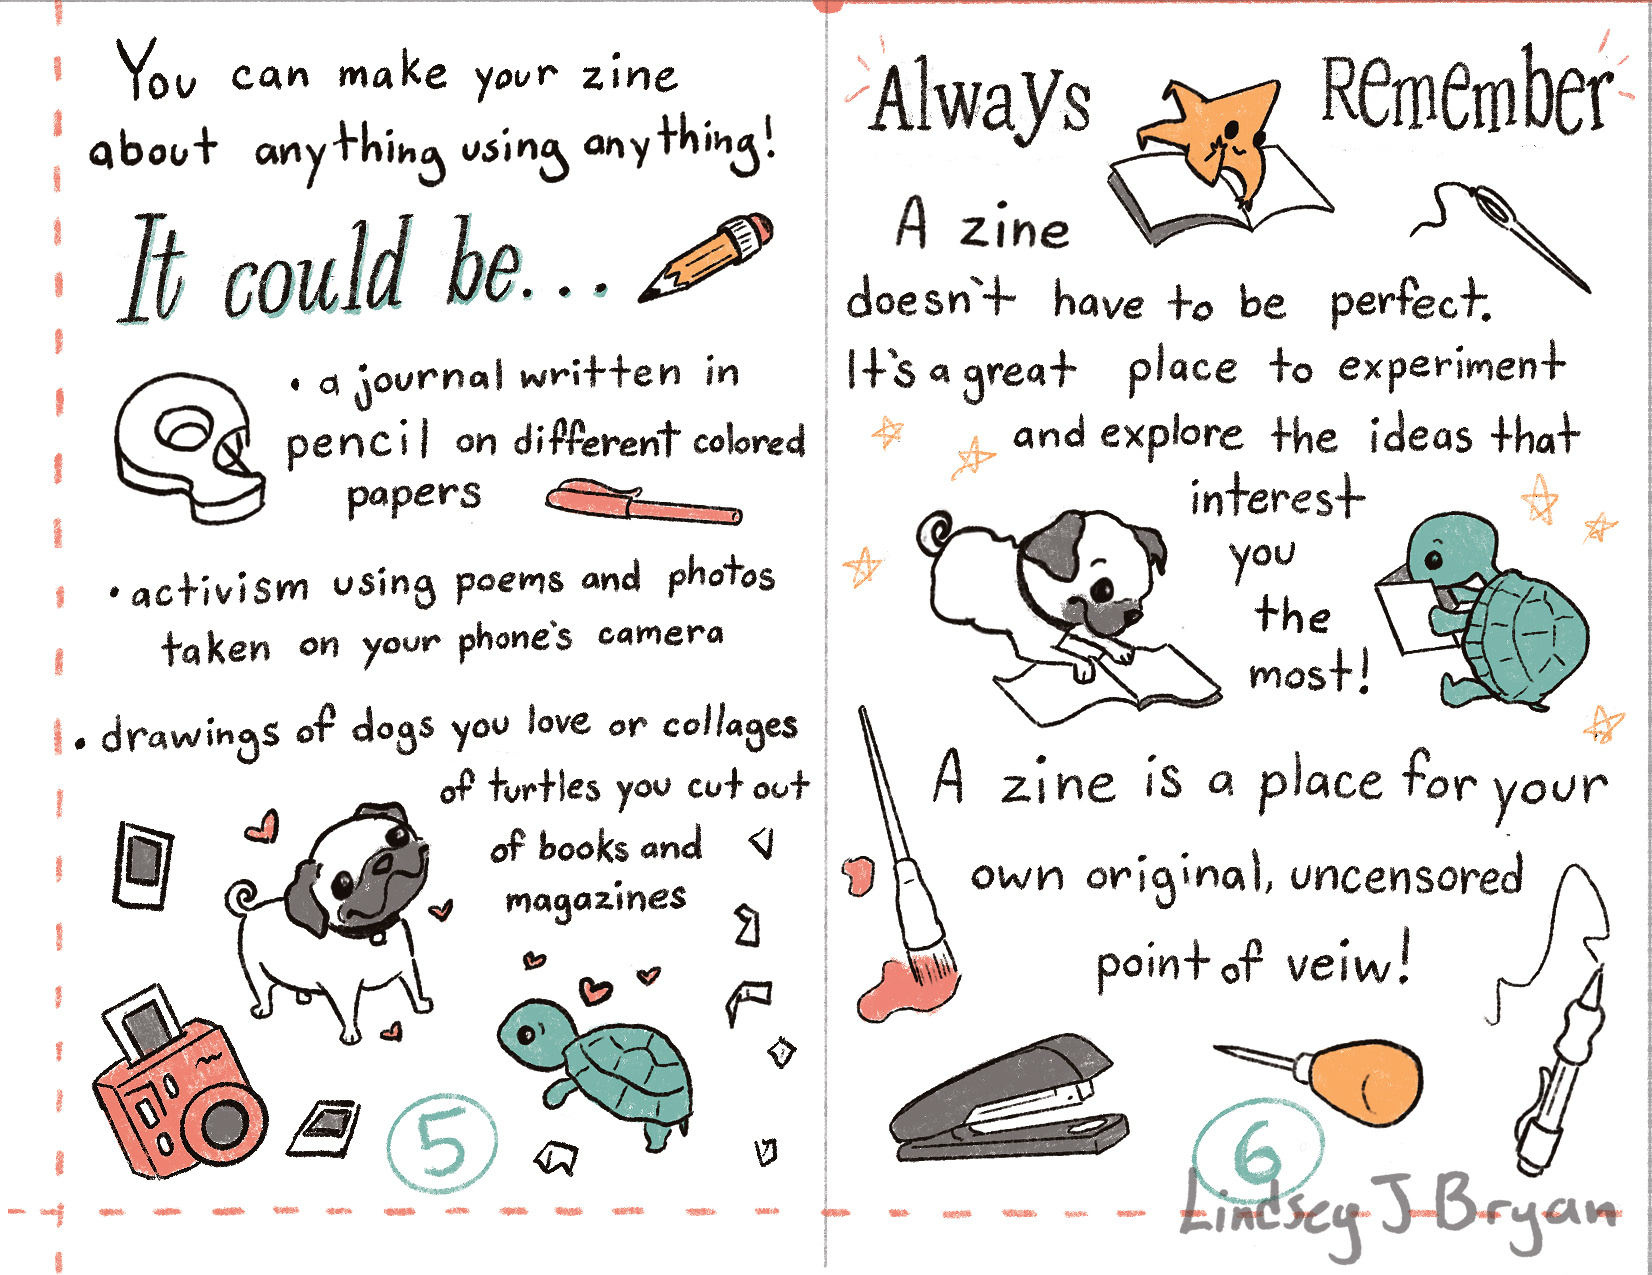 You can make your zine
about anything using anything!
It could be...
• a journal written in
pencil on different colored
papers
• activism using poems and photos
taken on your phone's camera
• drawings of dogs you love or collages
of turtles you cut out
of books and
magazines
5
Always Remember
A zine
doesn't have to be perfect.
It's a great place to experiment
and explore the ideas that
interest
you
the
most!
A zine is a place for your
own original, uncensored
point of veiw!
6
Lindsey J Bryan